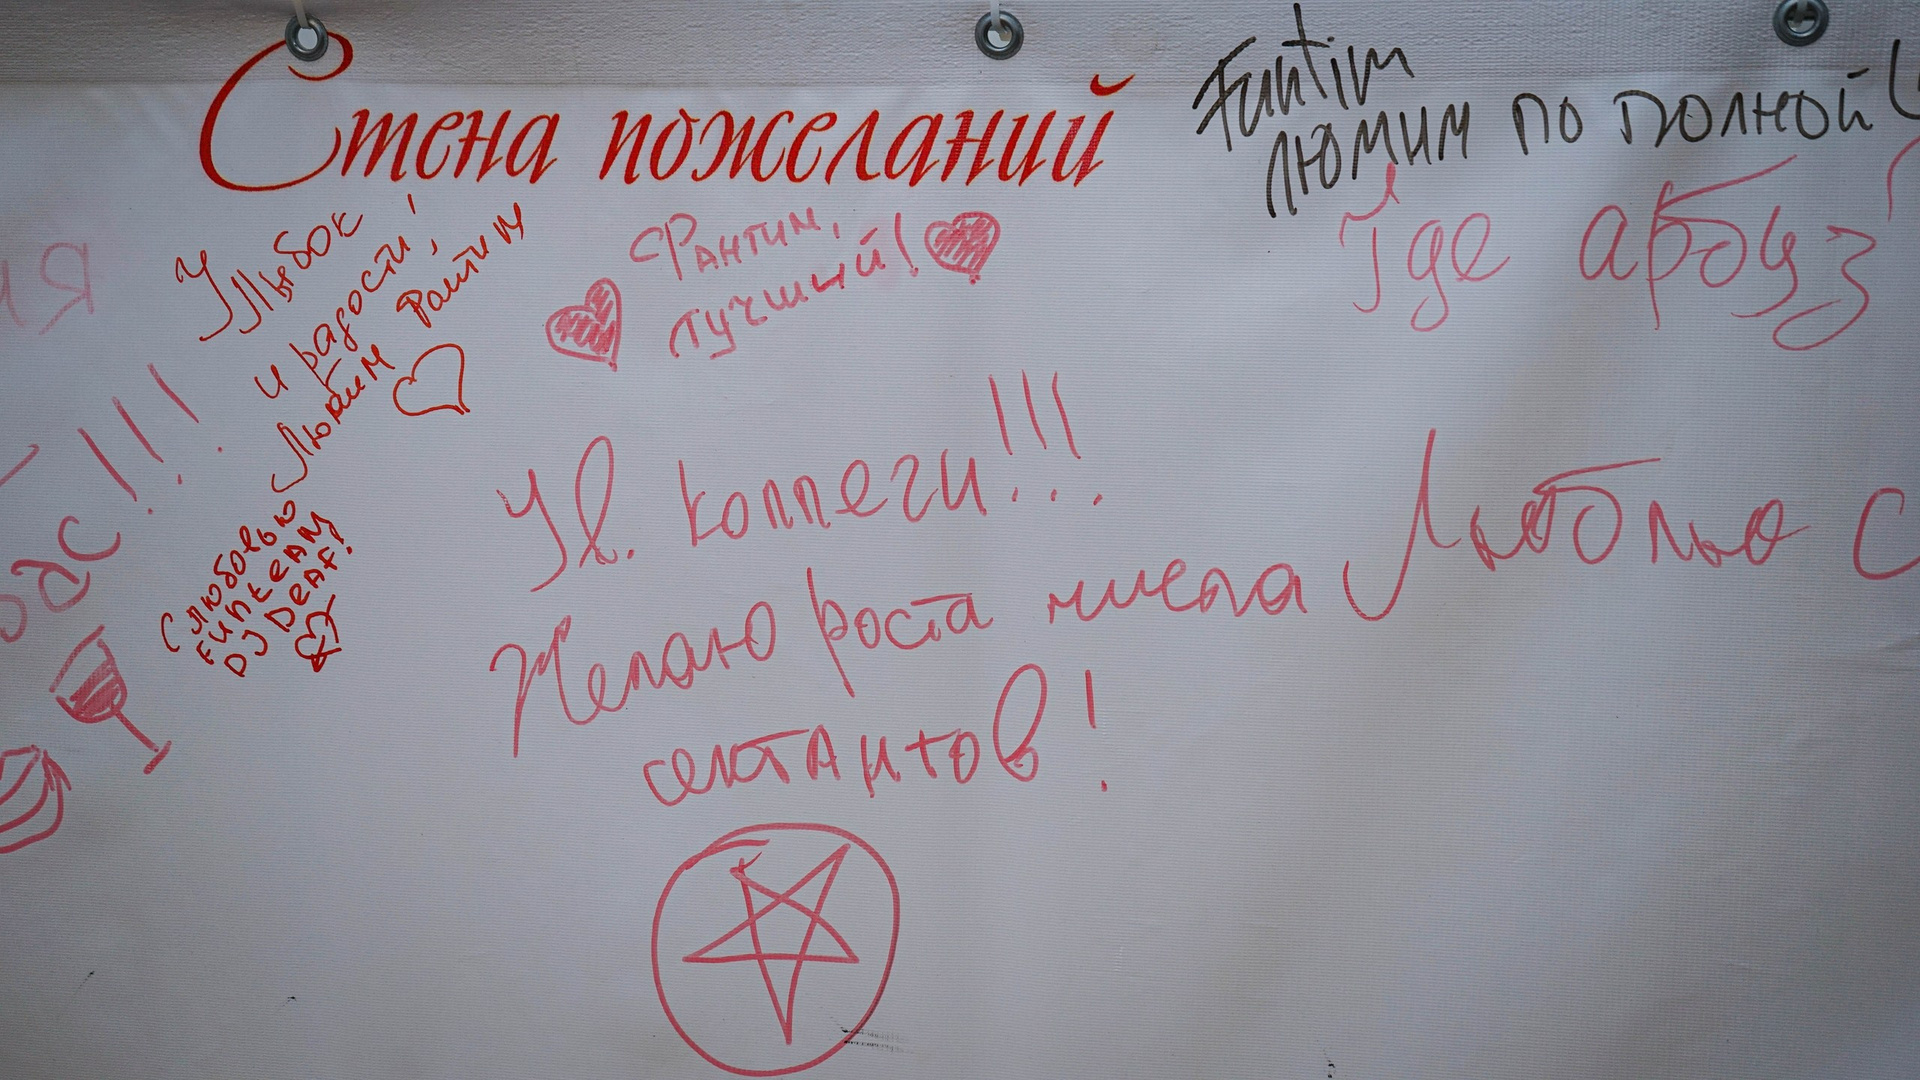 Стена пожеланий
Funtim
люмим по полной
Улыбок
и радости!
Любим Фантим
Фантим,
лучший!
Где арбуз
Ув. коллеги!!!
Желаю роста числа
сектантов!
Люблю С
С любовью
DJ DEAF!
вас!!!
ия